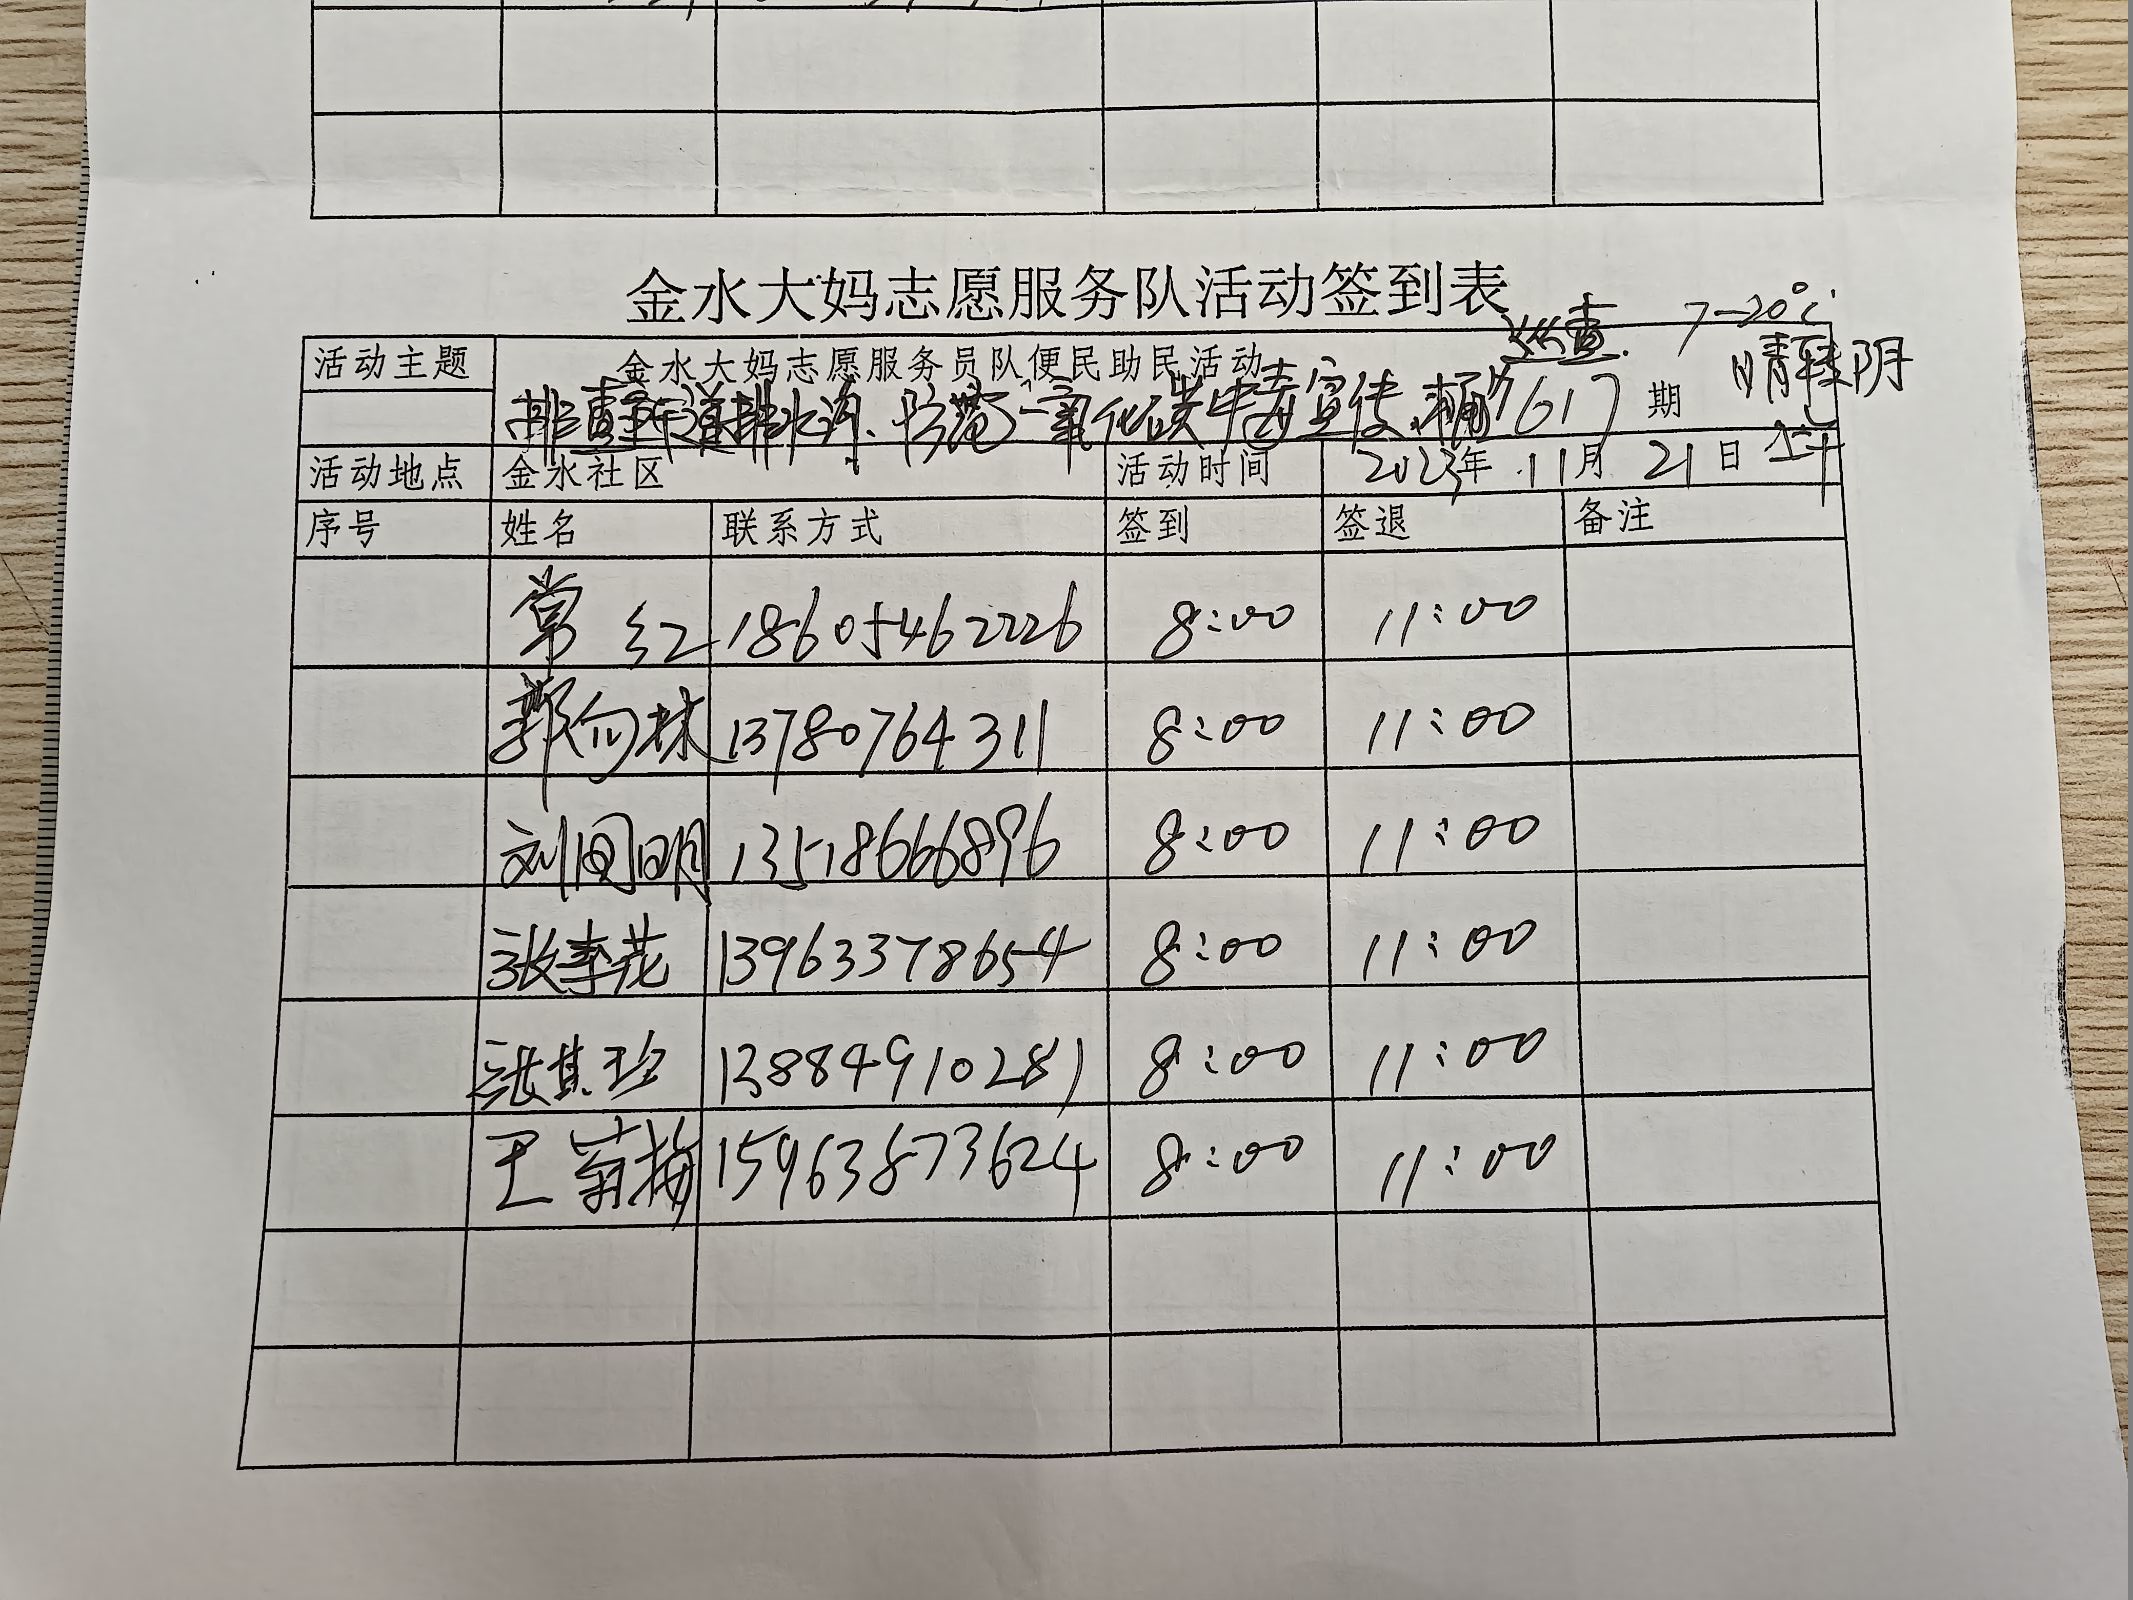 金水大妈志愿服务队活动签到表
巡查. 7-20℃
活动主题 金水大妈志愿服务员队便民助民活动 晴转阴
排查街道排水沟、防范一氧化碳中毒宣传、楠 617 期
活动地点 金水社区 活动时间 2023年 11月 21日
序号 姓名 联系方式 签到 签退 备注
常红 18605462226 8:00 11:00
郭向林 13780764311 8:00 11:00
刘同明 13518666896 8:00 11:00
张季花 13963378654 8:00 11:00
张其珍 13884910281 8:00 11:00
王菊梅 15963873624 8:00 11:00